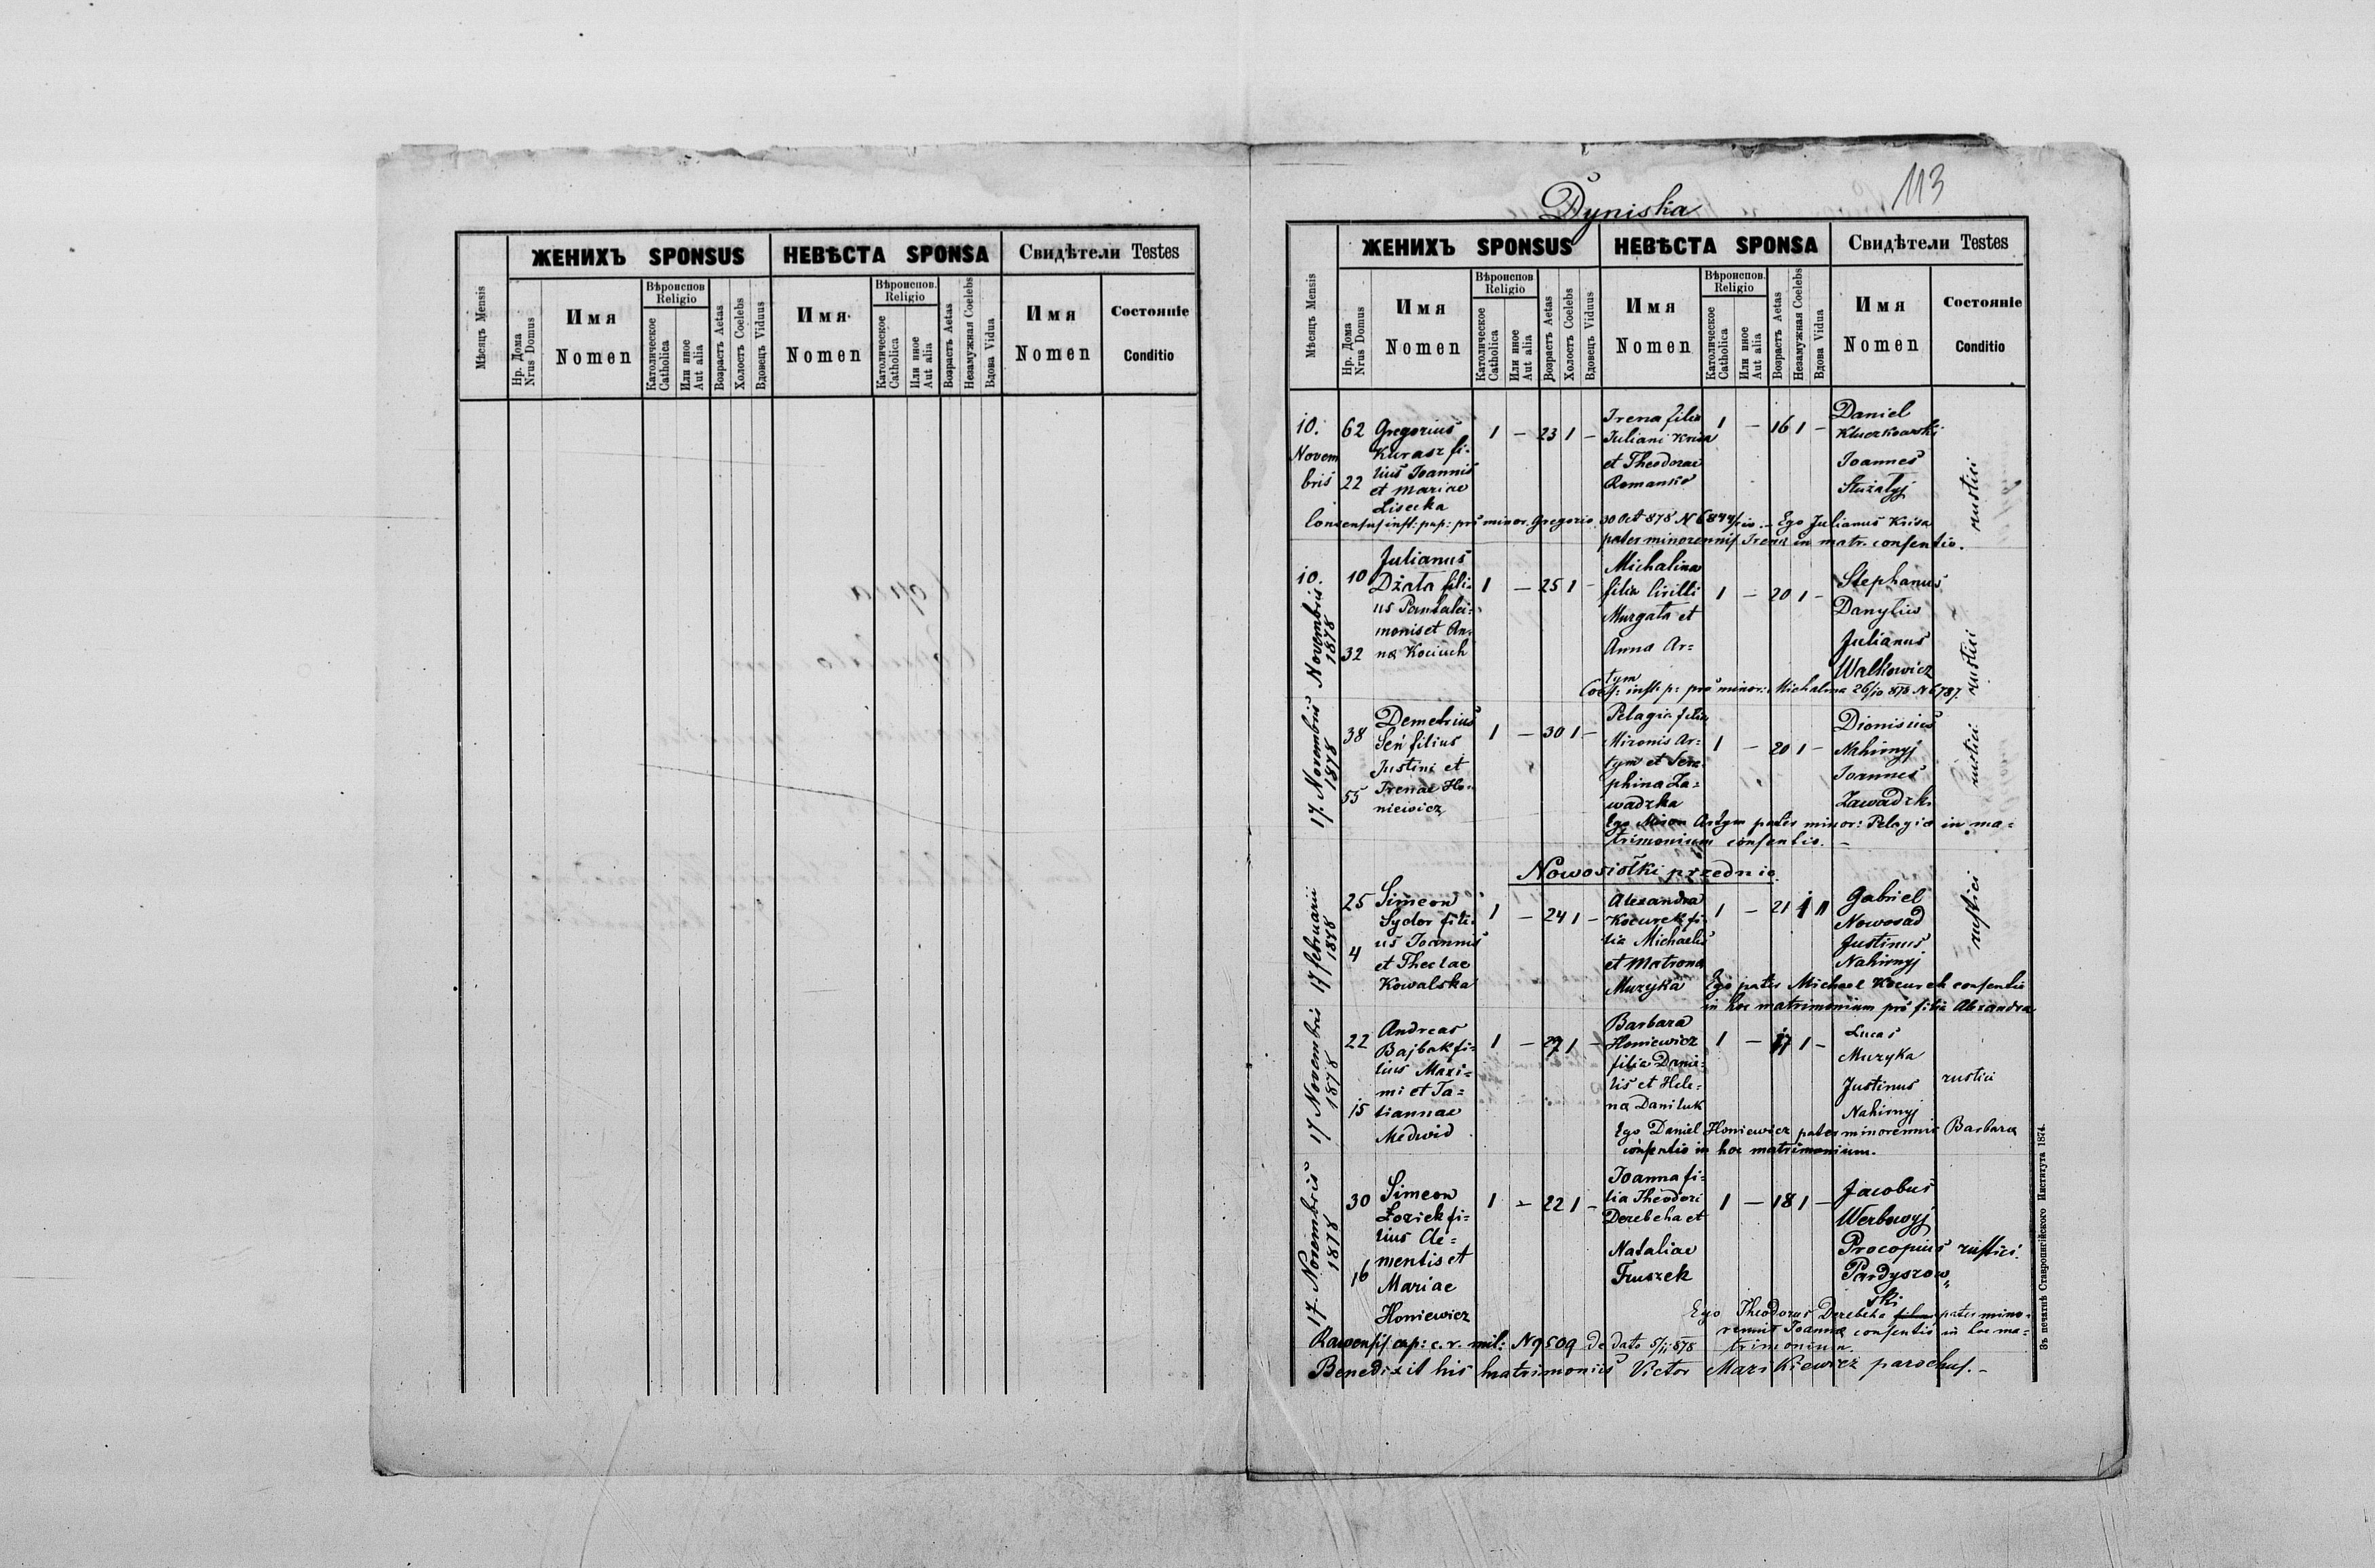 ЖЕНИХЪ SPONSUS
НЕВѢСТА SPONSA
Свидѣтели Testes
Мѣсяцъ Mensis
Нр. Дома
Nrus Domus
Имя
Nomen
Вѣроиспов
Religio
Католическое
Catholica
Или иное
Aut alia
Возрастъ Aetas
Холостъ Coelebs
Вдовецъ Viduus
Имя
Nomen
Вѣроиспов.
Religio
Католическое
Catholica
Или иное
Aut alia
Возрастъ Aetas
Незамужная Coelebs
Вдова Vidua
Имя
Nomen
Состояніе
Conditio
113
Dyniska
ЖЕНИХЪ SPONSUS
НЕВѢСТА SPONSA
Свидѣтели Testes
Мѣсяцъ Mensis
Нр. Дома
Nrus Domus
Имя
Nomen
Вѣроиспов
Religio
Католическое
Catholica
Или иное
Aut alia
Возрастъ Aetas
Холостъ Coelebs
Вдовецъ Viduus
Имя
Nomen
Вѣроиспов.
Religio
Католическое
Catholica
Или иное
Aut alia
Возрастъ Aetas
Незамужная Coelebs
Вдова Vidua
Имя
Nomen
Состояніе
Conditio
10.
Novem
bris
62
22
Gregorius
Kurasz fi-
lius Joannis
et Mariae
Lisecka
1 – 23 1 –
Irena filia
Juliani Krisa
et Theodorae
Romanko
1 – 16 1 –
Daniel
Kluczkowski
Joannes
rustici
Consensus inst: pup: pro minor. Gregorio 30 Oct 878 N 6844 – Ego Julianus Krisa
pater minorennis Irena in matr. consentio.
10. Novembris
1878
10
32
Julianus
Dżata fili-
us Pantalei-
monis et An-
na Kociuch
1 – 25 1 –
Michalina
filia Cirilli
Murgata et
Anna Ar=
tym
1 – 20 1 –
Stephanus
Danyliw
Julianus
Walkowicz
rustici
inst: p: pro minor: Michalina 26/10 878 N 6787.
17. Novembris
1878
38
55
Demetrius
Seń filius
Justini et
Irenae Ho-
niewicz
1 – 30 1 –
Pelagia filia
Mironis Ar-
tym et Sera
phina Za-
wadzka
1 – 20 1 –
Dionisius
Nahirnyj
Joannes
Zawadzki
rustici
Ego Miron Artym pater minor: Pelagia in ma=
trimonium consentio. –
Nowosiołki przednie.
17 februarii
1878
25
4
Simeon
Sydor fili-
us Joannis
et Theclae
Kowalska
1 – 24 1 –
Alexandra
Kocurek fi-
lia Michaelis
et Matrona
Muzyka
1 – 21 1
Gabriel
Nowosad
Justinus
Nahirnyj
rustici
Ego pater Michael Kocurek consentio
in hoc matrimonium pro filia Alexandra
17 Novembris
1878
22
15
Andreas
Bajbak fi=
lius Maxi=
mi et Ta=
tiannae
Medwid
1 – 27 1 –
Barbara
Honiewicz
filia Danie-
lis et Hele-
na Daniluk
1 – 17 1 –
Lucas
Muzyka
Justinus
Nahirnyj
rustici
Ego Daniel Honiewicz pater minorennis Barbara
consentio in hoc matrimonium.
17. Novembris
1878
30
16
Simeon
Łozick fi=
lius Cle=
mentis et
Mariae
Honiewicz
1 – 22 1 –
Joanna fi-
lia Theodori
Derebeha et
Nataliae
Fruszek
1 – 18 1 –
Jacobus
Werbowyj
Procopius
Pardyszow
ski
rustici.
Ego Theodorus Derebeha pater mino-
rennis Joanna consentio in hoc ma=
trimonium.
cap: c. r. mil: N 9509 de dato 5/11 878
Benedixit his matrimoniis Victor Mazikiewicz parochus. –
Въ печатнѣ Ставропигійского Института 1874.